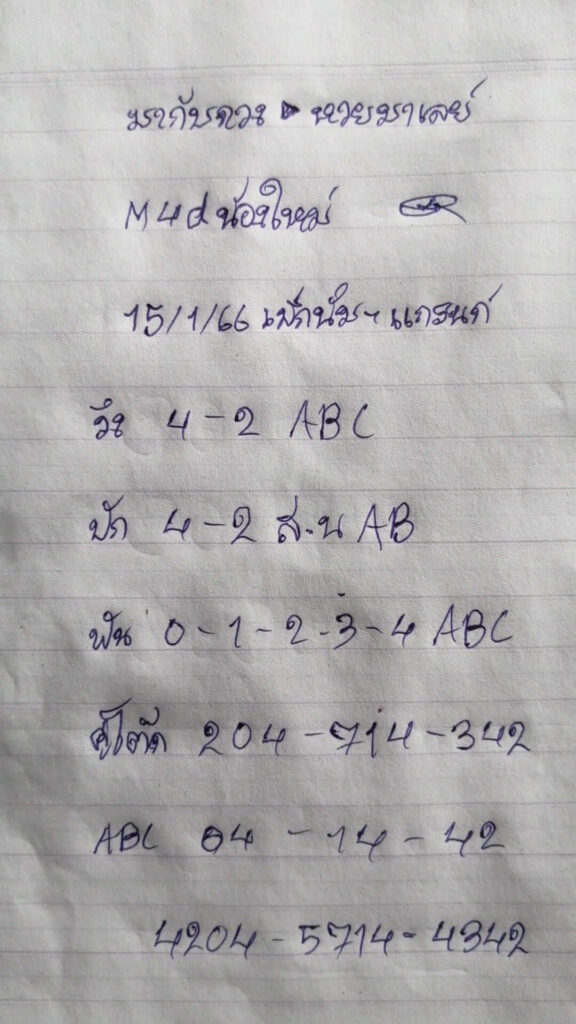 มากับดวง ▶ หวยมาเลย์
M4d น้องใหม่
15/1/66 แม็กนั่ม~แกรนด์
วิ่ง 4-2 ABC
ปัก 4-2 ส.น AB
ฟัน 0-1-2-3-4 ABC
204-714-342
ABC 04-14-42
4204-5714-4342